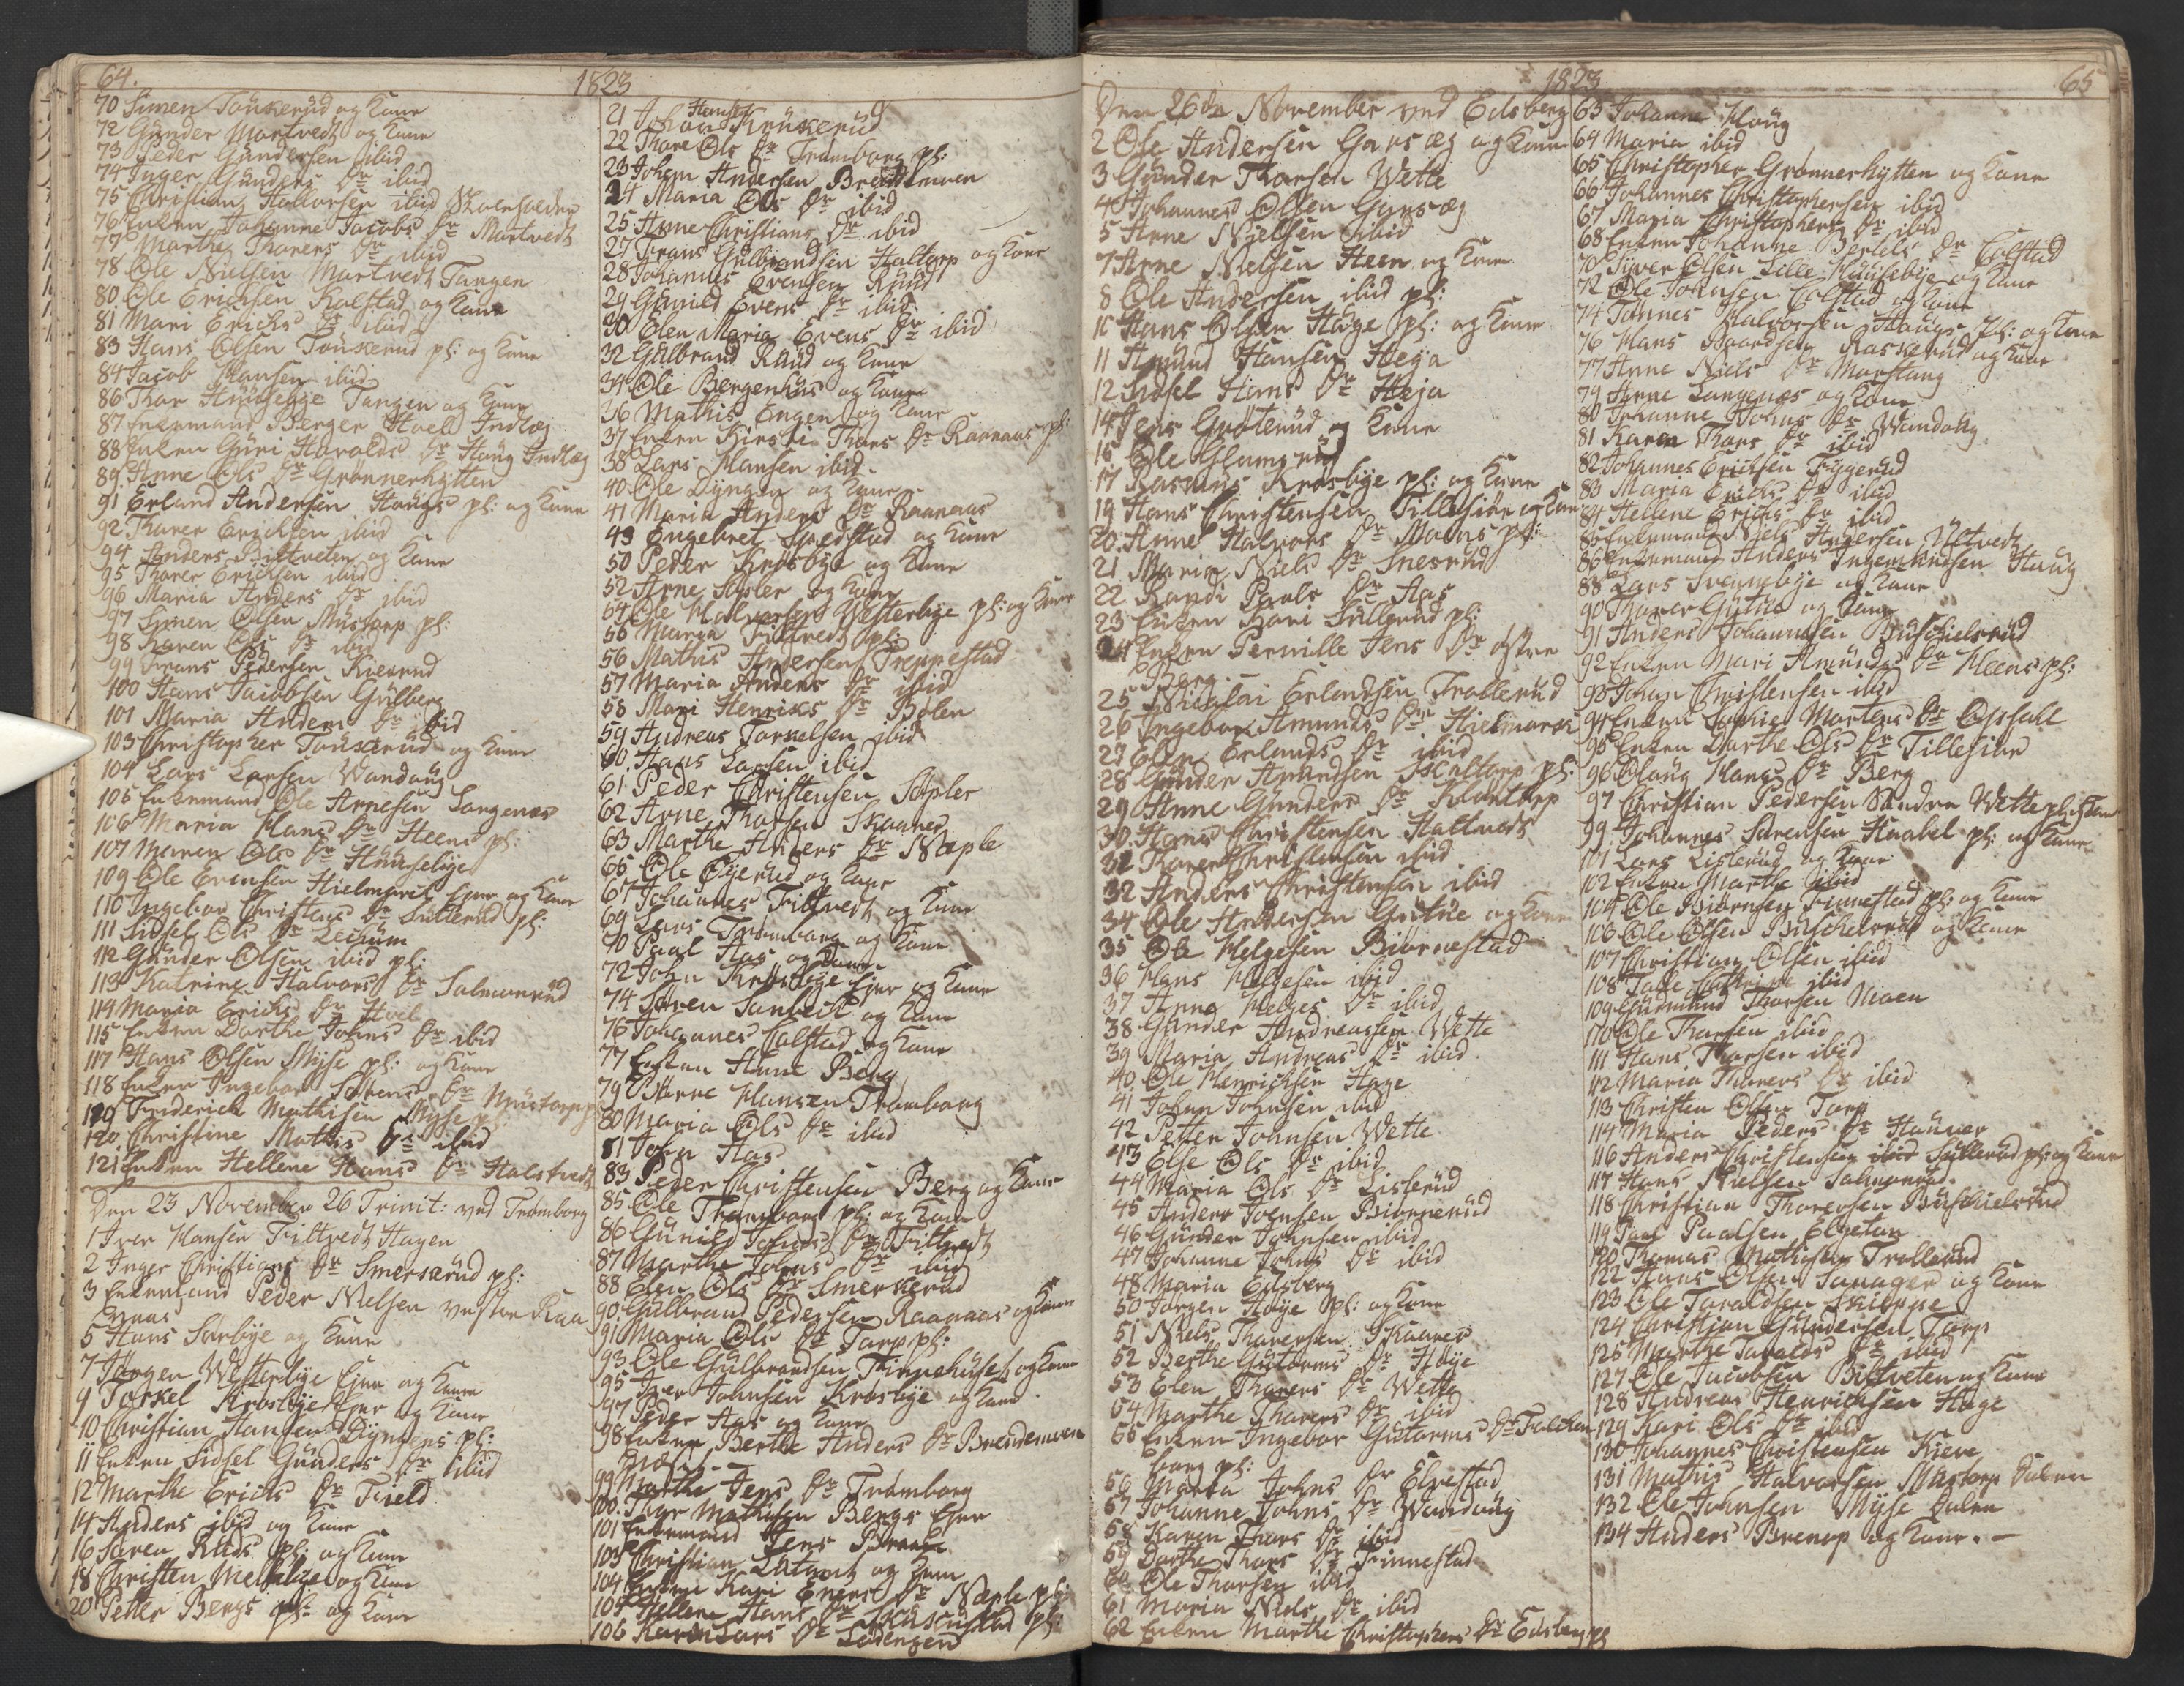 64.
1823
70 Simen Tonkerud og Kone
72 Gunder Martvedt og Kone
73 Peder Gundersen ibid
74 Inger Gunders Dr ibid
75 Christian Halvorsen ibid
76 Enken Johanne Jacobs Dr Martvedt
77 Marthe Thorers Dr ibid
78 Ole Nielsen Martvedt Tangen
80 Ole Erichsen Kolstad og Kone
81 Mari Erichs Dr ibid
83 Hans Olsen Tonkerud pl: og Kone
84 Jacob Hansen ibid
86 Thor Tangen og Kone
87 Enkemand Berger Hoel Indlæg
88 Enken Guri Haralds Dr Houg Indlæg
89. Anne Ols Dr Grønnerhytten
91 Erland Andersen Hougs pl: og Kone
92 Thorer Erichsen ibid
94 Anders Biltveten og Kone
95 Thorer Erichsen ibid
96 Maria Anders Dr ibid
97 Simen Olsen Mustorp pl:
98 Karen Ols Dr ibid
99 Frans Pedersen Kiesrud
100 Hans Jacobsen Gulberg
101 Maria Anders Dr ibid
103 Christopher Tonkerud og Kone
104 Lars Larsen Wandoug
105 Enkemand Ole Arnesen Langenæs
106 Maria Hans Dr Heens pl:
107 Maren Ols Dr Huusebye
109 Ole Evensen Hielmark Eier og Kone
110 Ingebor Christens Dr Sullerud pl:
111 Sidsel Ols Dr Lechum
112 Gunder Olsen ibid pl:
113 Katrine Halvors Dr Salmonrud
114 Maria Erichs Dr Hoel
115 Enken Dorthe Johns Dr ibid
117 Hans Olsen Myse pl: og Kone
118 Enken Ingebor Sørens Dr Mustorp pl
119 Friderich Mathisen Myse
120 Christine Mathis Dr ibid
121 Enken Hellene Hans Dr Halstvedt
Den 23 November 26 Trinit: ved Trømborg
1 Iver Hansen Filtvedt Hagen
2 Inger Christians Dr Smerkerud pl:
3 Enkemand Peder Nielsen vestre Raa
naas
5 Hans Sørbye og Kone
7 Hogen Westerbye Eier og Kone
9 Torkel Krosbye Eier og Kone
10 Christian Hansen Dyngens pl:
11 Enken Sidsel Gunders Dr ibid
12 Marthe Erichs Dr Field
14 Anders ibid og Kone
16 Søren Ruds pl: og Kone
18 Christen Melleby og Kone
20 Petter Bergs pl: og Kone
21 Johan Hansen Krukerud
22 Thore Ols Dr Trømborg pl:
23 Johan Andersen Breidemoen
24 Maria Ols Dr ibid
25 Anne Christians Dr ibid
27 Frans Gulbrandsen Haltorp og Kone
28 Johannes Evensen Ruud
29 Gunild Evens Dr ibid
30 Elen Maria Evens Dr ibid
32 Gulbrand Ruud og Kone
34 Ole Bergenhus og Kone
36 Mathis Engen og Kone
37 Enken Kirsti Thors Dr Raanaas pl:
38 Lars Hansen ibid.
40 Ole Dyngen og Kone
41 Maria Anders Dr Raanaas
43 Engebret og Kone
50 Peder Krosbye og Kone
52 Arne Støler og Kone
54 Ole Halversen Westerbye pl: og Kone
55 Maria Filtvedt pl:
56 Mathis Andersen Treppestad
57 Maria Anders Dr ibid
58 Mari Henriks Dr Bølen
59 Andreas Torkelsen ibid
60 Hans Larsen ibid
61 Peder Christensen Støler
62 Arne Thorsen Skaares
63 Marthe Anders Dr Næple
65 Ole Øyerud og Kone
67 Johannes Filtvedt og Kone
69 Lars Trømborg og Kone
70 Paal Aas og Kone
72 John Krosbye Eier og Kone
74 Søren og Kone
76 Johannes Colstad og Kone
77 Enken Anne Berg
79 Hanne Hansen Trømborg
80 Maria Ols Dr ibid
81 John Aas
83 Peder Christensen Berg og Kone
85 Ole Trømborg pl: og Kone
86 Gunild Johns Dr Filtvedt
87 Marthe Johns Dr ibid
88 Elen Ols Dr Smerkerud
90 Gulbrand Pedersen Raanaas og Kone
91 Maria Ols Dr Torp pl:
93 Ole Gulbrandsen Finnehuset og Kone
95 Iver Johnsen Krosbye og Kone
97 Peder Aas og Kone
98 Enken Berthe Anders Dr Breidemoen
99 Marthe Jens Dr Trømborg
100. Thor Mathisen Bergs Eier
101 Enkemand Jens Braate
103 Christian og Kone
104 Enken Kari Eners Dr Næple pl:
105 Hellene Hans Dr pl:
106 Karen Lars Dr Sødengen
1823
65
Den 26de November ved Edsberg
2 Ole Andersen Garsæg og Kone
3 Gunder Thorsen Wette
4 Johannes Olsen Garsæg
5 Arne Nielsen ibid
7 Arne Nielsen Heen og Kone
8 Ole Andersen ibid pl:
10 Hans Olsen Hage pl: og Kone
11 Amund Hansen Heja
12 Sidsel Hans Dr Heja
14 Jens Grøterud og Kone
15 Ole Glamsrud
17 Rasmus Krosbye pl: og Kone
19 Hans Christensen Tillesiøn og Kone
20. Anne Halvors Dr Moens pl:
21 Maria Niels Dr Snesrud
22 Randi Pauls Dr Aas
23 Enken Kari Sullerud pl:
24 Enken Pernille Jens Dr østre
Berg
25 Nicolai Erlandsen Trollerud
26 Ingebor Amunds Dr Hielmark
27 Elen Erlands Dr ibid
28 Gunder Amundsen Haltorp pl:
29 Anne Gunders Dr Klontorp
30. Hans Christensen Haltvedt
31 Thorer Christensen ibid
32 Anders Christensen ibid
34 Ole Andersen Gutue og Kone
35 Ole Helgesen Biørnestad
36 Hans Helgesen ibid
37 Anne Helges Dr ibid
38 Gunder Andreassen Wette
39 Maria Andreas Dr ibid
40 Ole Henrichsen Hage
41 John Johnsen ibid
42 Petter Johnsen Wette
43 Else Ols Dr ibid
44 Maria Ols Dr Lislerud
45 Anders Joensen Biørnerud
46 Gunder Johnsen ibid
47 Johanne Johns Dr ibid
48 Maria Edsberg
50 Jørgen Høye pl: og Kone
51 Niels Thorersen Skaares
52 Berthe Gutorms Dr Høye
53 Elen Thorers Dr Wette
54 Marthe Thorers Dr ibid
55 Enken Ingebor Gutorms Dr Falken
borg pl:
56 Maria Johns Dr Elvestad
57 Johanne Johns Dr Wandoug
58 Karen Thors Dr ibid
59 Dorthe Thors Dr Finnestad
60 Ole Thorsen ibid
61 Maria Niels Dr ibid
62 Enken Marthe Christophers Dr Edsberg pl
63 Johanne Houg
64 Maria ibid
65 Christopher Grønnerhytten og Kone
66 Johannes Christophersen ibid
67 Maria Christophers Dr ibid
68 Enken Johanne Bertels Dr Colstad
70 Syver Olsen Lille Huusebye og Kone
72 Ole Johnsen Colstad og Kone
74 Tønnes Halvorsen Hougs pl: og Kone
76 Hans Baardsen Raskerud og Kone
77 Anne Niels Dr Morstang
79 Arne Langenæs og Kone
80 Johanne Johns Dr Wandoug
81 Karen Thors Dr ibid
82 Johannes Erichsen Fygerud
83 Maria Erichs Dr ibid
84 Hellene Erichs Dr ibid
85 Enkemand Niels Andersen
86 Enkemand Anders Ingemundsen Haug
88 Lars Svennebye og Kone
90 Thorer Gutue og Kone
91 Anders Johannesen Buschielsrud
92 Enken Mari Amunds Dr Heens pl:
93 Johan Christensen ibid
94 Enken Sophie Mortens Dr Opsahl
95 Enken Dorthe Ols Dr Tillesiøn
96 Olaug Hans Dr Berg
97 Christian Pedersen Søndre Wette pl: og Kone
99. Johannes Sørensen Knabel pl: og Kone
101 Lars Lislerud og Kone
102 Enken Marthe ibid
104 Ole Biørnsen Finnestad pl: og Kone
106 Ole Olsen Buschelsrud og Kone
107 Christian Olsen ibid
108 Tale Cathrine ibid
109 Gudmund Thorsen Moen
110 Ole Thorsen ibid
111 Hans Thorsen ibid
112 Maria Thorers Dr ibid
113 Christen Olsen Torp
114 Maria Peders Dr Hauger
116 Anders Christensen ibid Sullerud pl: og Kone
117 Hans Nielsen Salmonrud
118 Christian Thorersen Buschielsrud
119 Paul Paalsen Elgetun
120 Thomas Mathisen Trollerud
122 Hans Olsen og Kone
123 Ole Taraldsen Skieppe
124 Christian Gundersen Torp
125 Marthe Taralds Dr ibid
127 Ole Jacobsen Biltveten og Kone
128 Andreas Henrichsen Hage
129 Kari Ols Dr ibid
130. Johannes Christensen Kieve
131 Mathis Halvorsen Mustorp
132 Ole Johnsen Myse
134 Anders Brenop og Kone. —